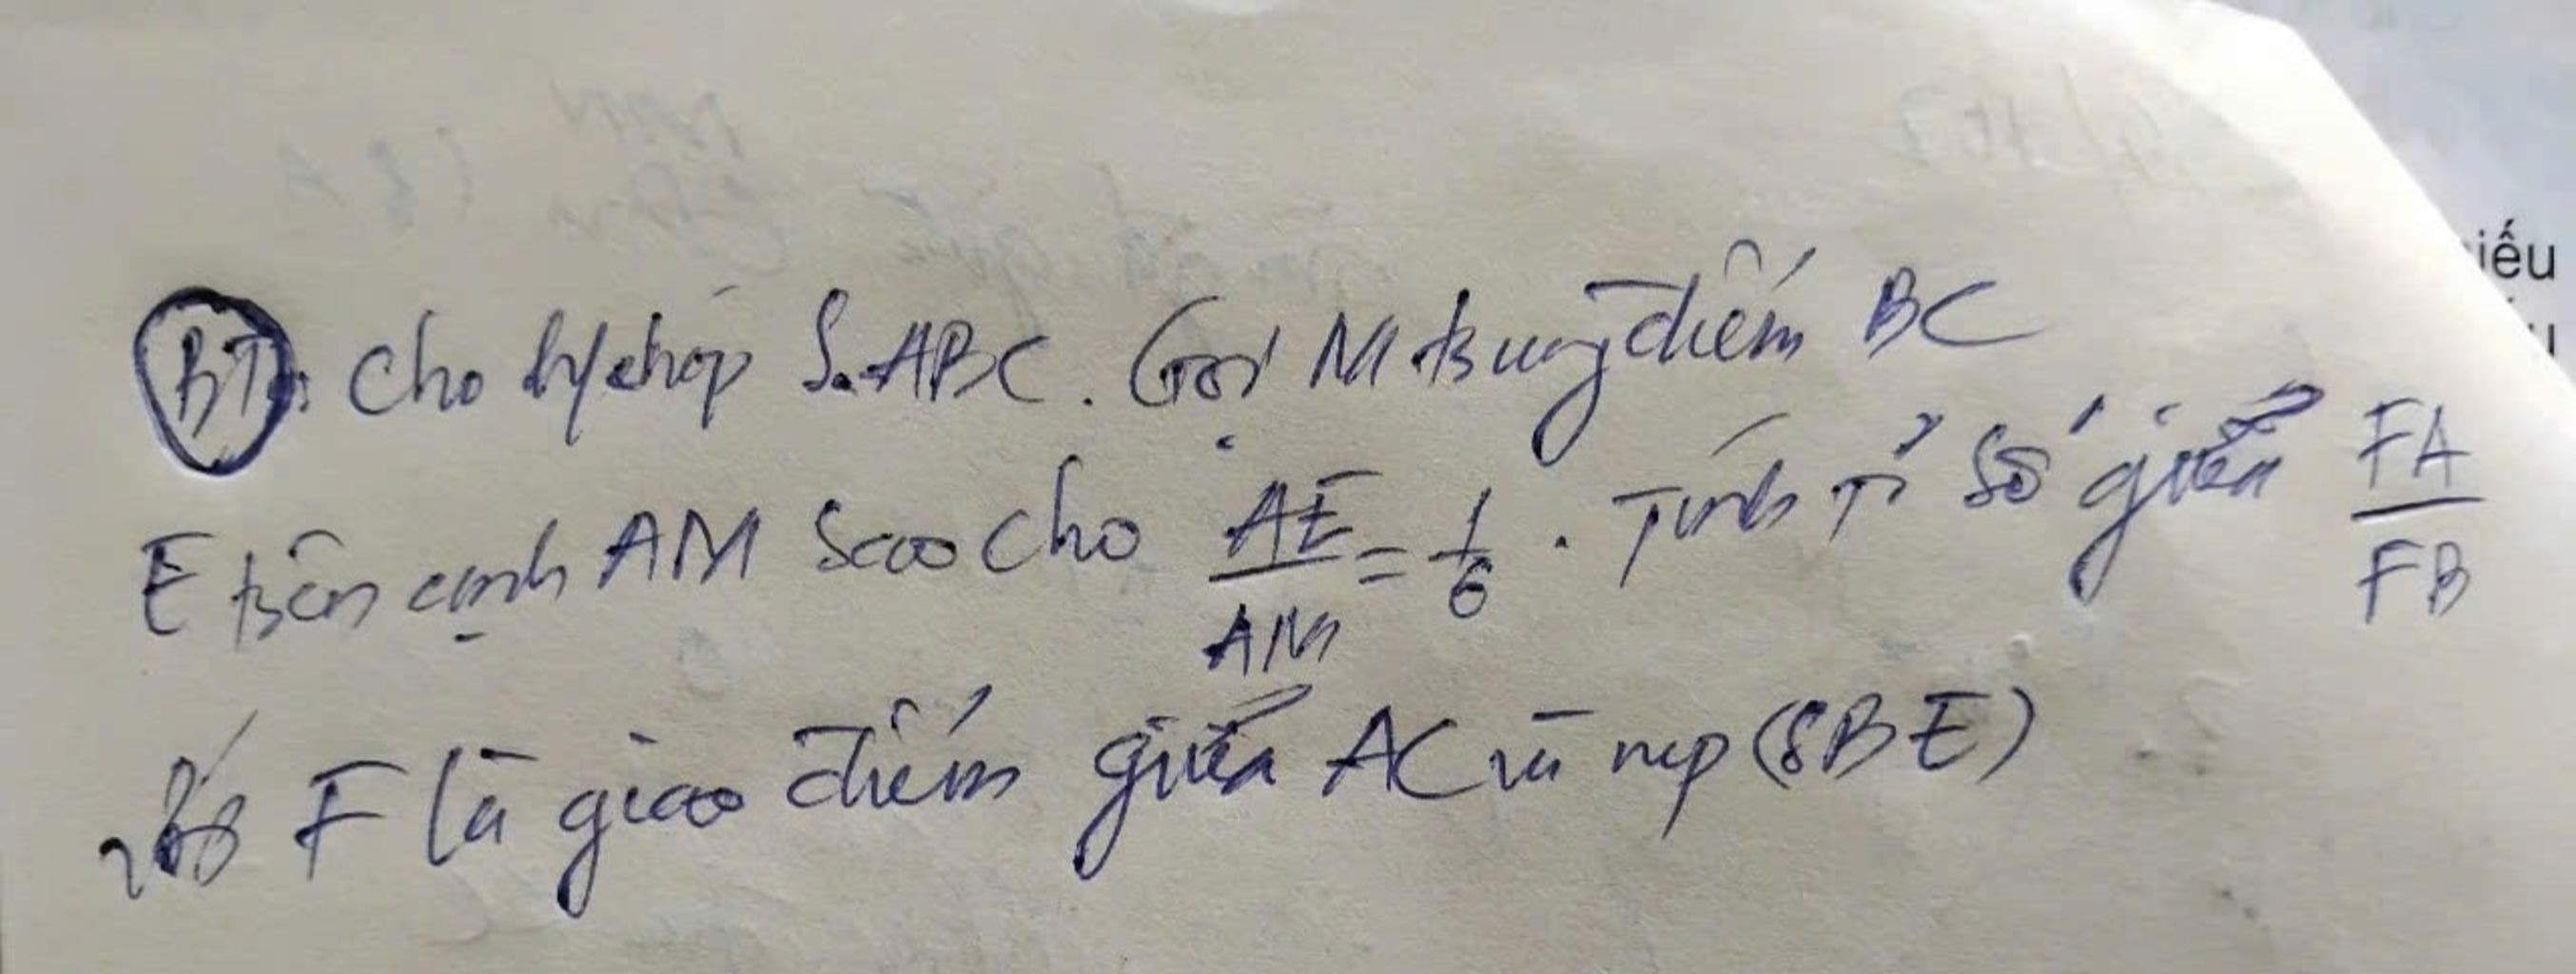 BT: Cho h/chóp S.ABC. Gọi M trung điểm BC
E trên cạnh AM sao cho AE/AM = 1/6. Tính tỉ số giữa FA/FB
với F là giao điểm giữa AC và mp (SBE)
iếu